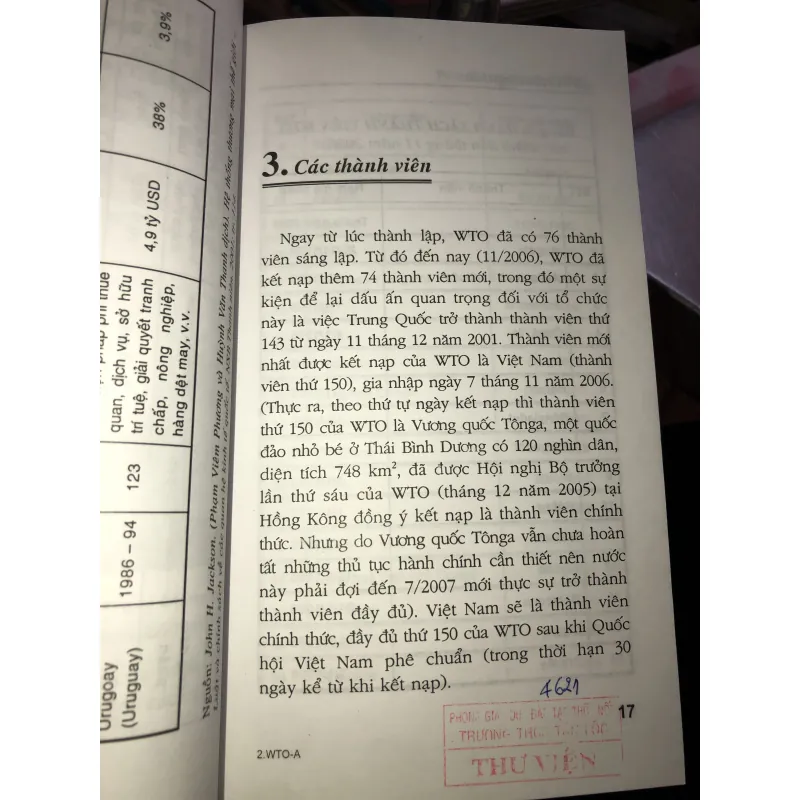 3. Các thành viên
Ngay từ lúc thành lập, WTO đã có 76 thành
viên sáng lập. Từ đó đến nay (11/2006), WTO đã
kết nạp thêm 74 thành viên mới, trong đó một sự
kiện để lại dấu ấn quan trọng đối với tổ chức
này là việc Trung Quốc trở thành thành viên thứ
143 từ ngày 11 tháng 12 năm 2001. Thành viên mới
nhất được kết nạp của WTO là Việt Nam (thành
viên thứ 150), gia nhập ngày 7 tháng 11 năm 2006.
(Thực ra, theo thứ tự ngày kết nạp thì thành viên
thứ 150 của WTO là Vương quốc Tônga, một quốc
đảo nhỏ bé ở Thái Bình Dương có 120 nghìn dân,
diện tích 748 km², đã được Hội nghị Bộ trưởng
lần thứ sáu của WTO (tháng 12 năm 2005) tại
Hồng Kông đồng ý kết nạp là thành viên chính
thức. Nhưng do Vương quốc Tônga vẫn chưa hoàn
tất những thủ tục hành chính cần thiết nên nước
này phải đợi đến 7/2007 mới thực sự trở thành
thành viên đầy đủ). Việt Nam sẽ là thành viên
chính thức, đầy đủ thứ 150 của WTO sau khi Quốc
hội Việt Nam phê chuẩn (trong thời hạn 30
ngày kể từ khi kết nạp).
4621
17
THƯ VIỆN
2.WTO-A
Urugoay
(Uruguay)
1986 – 94
123
quan, dịch vụ, sở hữu
trí tuệ, giải quyết tranh
chấp, nông nghiệp,
hàng dệt may, v.v.
4,9 tỷ USD
38%
3,9%
Nguồn: John H. Jackson. (Phạm Viêm Phương và Huỳnh Văn Thanh dịch). Hệ thống thương mại thế giới
Luật và chính sách về các quan hệ kinh tế quốc tế.